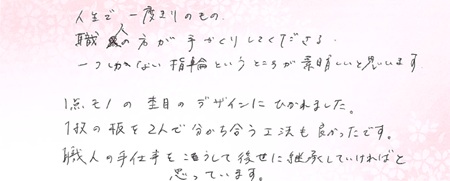 人生で一度きりのもの。
職人の方が手づくりしてくださる
一つしかない指輪というところが素晴しいと思います
1点モノの杢目のデザインにひかれました。
1枚の板を2人で分かち合う工法も良かったです。
職人の手仕事をこうして後世に継承していければと
思っています。